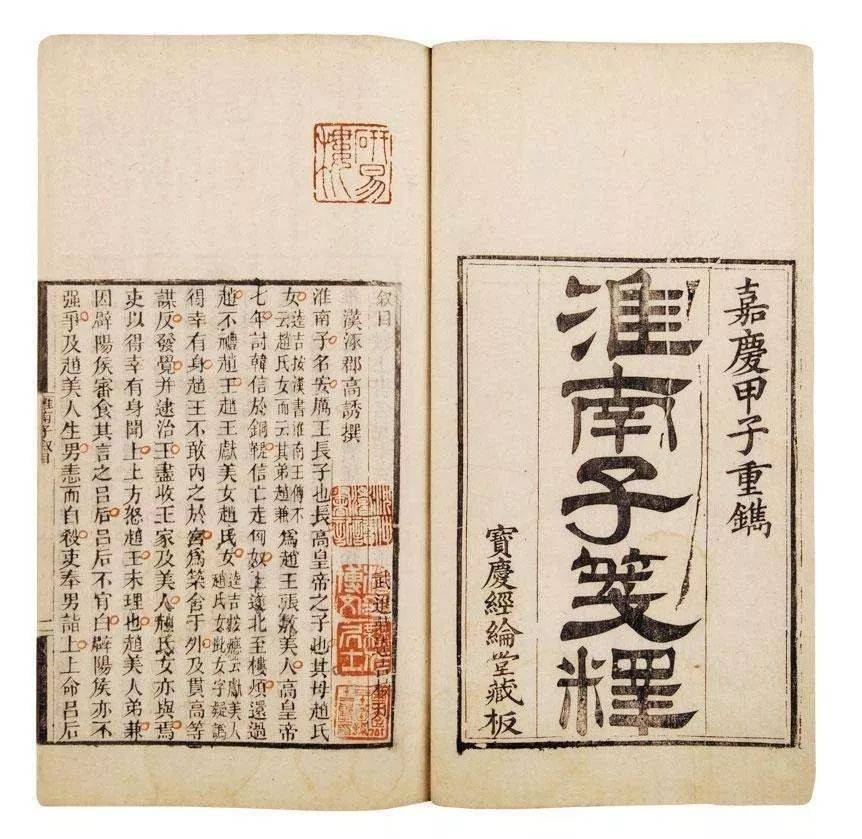 嘉慶甲子重鐫
淮南子箋釋
寶慶經綸堂藏板
叙目
武進莊逵吉校刊
漢涿郡高誘撰
淮南子名安厲王長子也長高皇帝之子也其母趙氏
女逵吉按漢書淮南王傳不云趙氏女而云其弟趙兼為趙王張敖美人高皇帝
七年討韓信於銅鞮信亡走匈奴上遂北至樓煩還過
趙不禮趙王趙王獻美女趙氏女逵吉按應云獻美人趙氏女此女字疑譌
得幸有身趙王不敢內之於宮為築舍于外及貫高等
謀反發覺并逮治王盡收王家及美人趙氏女亦與焉
吏以得幸有身聞上上方怒趙王未理也趙美人弟兼
因辟陽侯審食其言之呂后呂后不肯白辟陽侯亦不
強爭及趙美人生男恚而自殺吏奉男詣上上命呂后
淮南子叙目